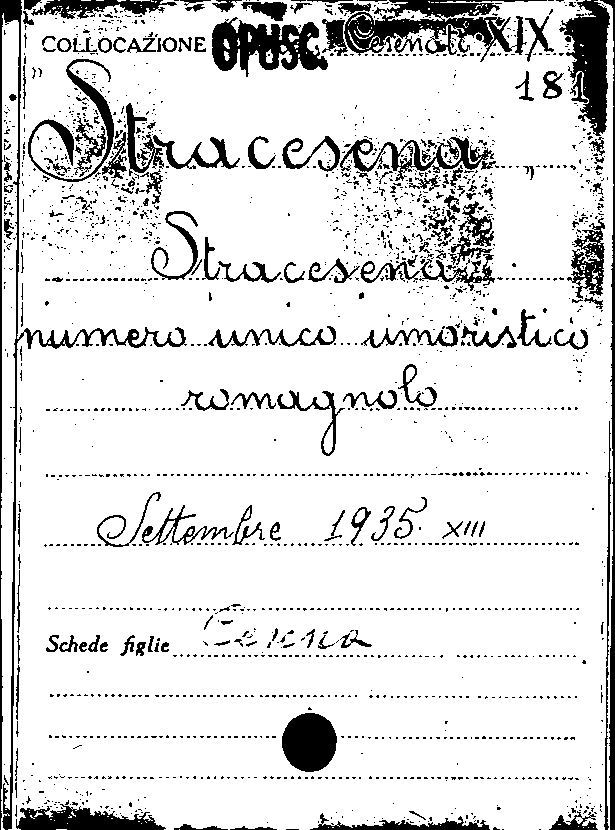 COLLOCAZIONE OPUSC. Cesenati XIX
181
"Stracesena"
Stracesena
numero unico umoristico
romagnolo
Settembre 1935. XIII
Schede figlie Cesena